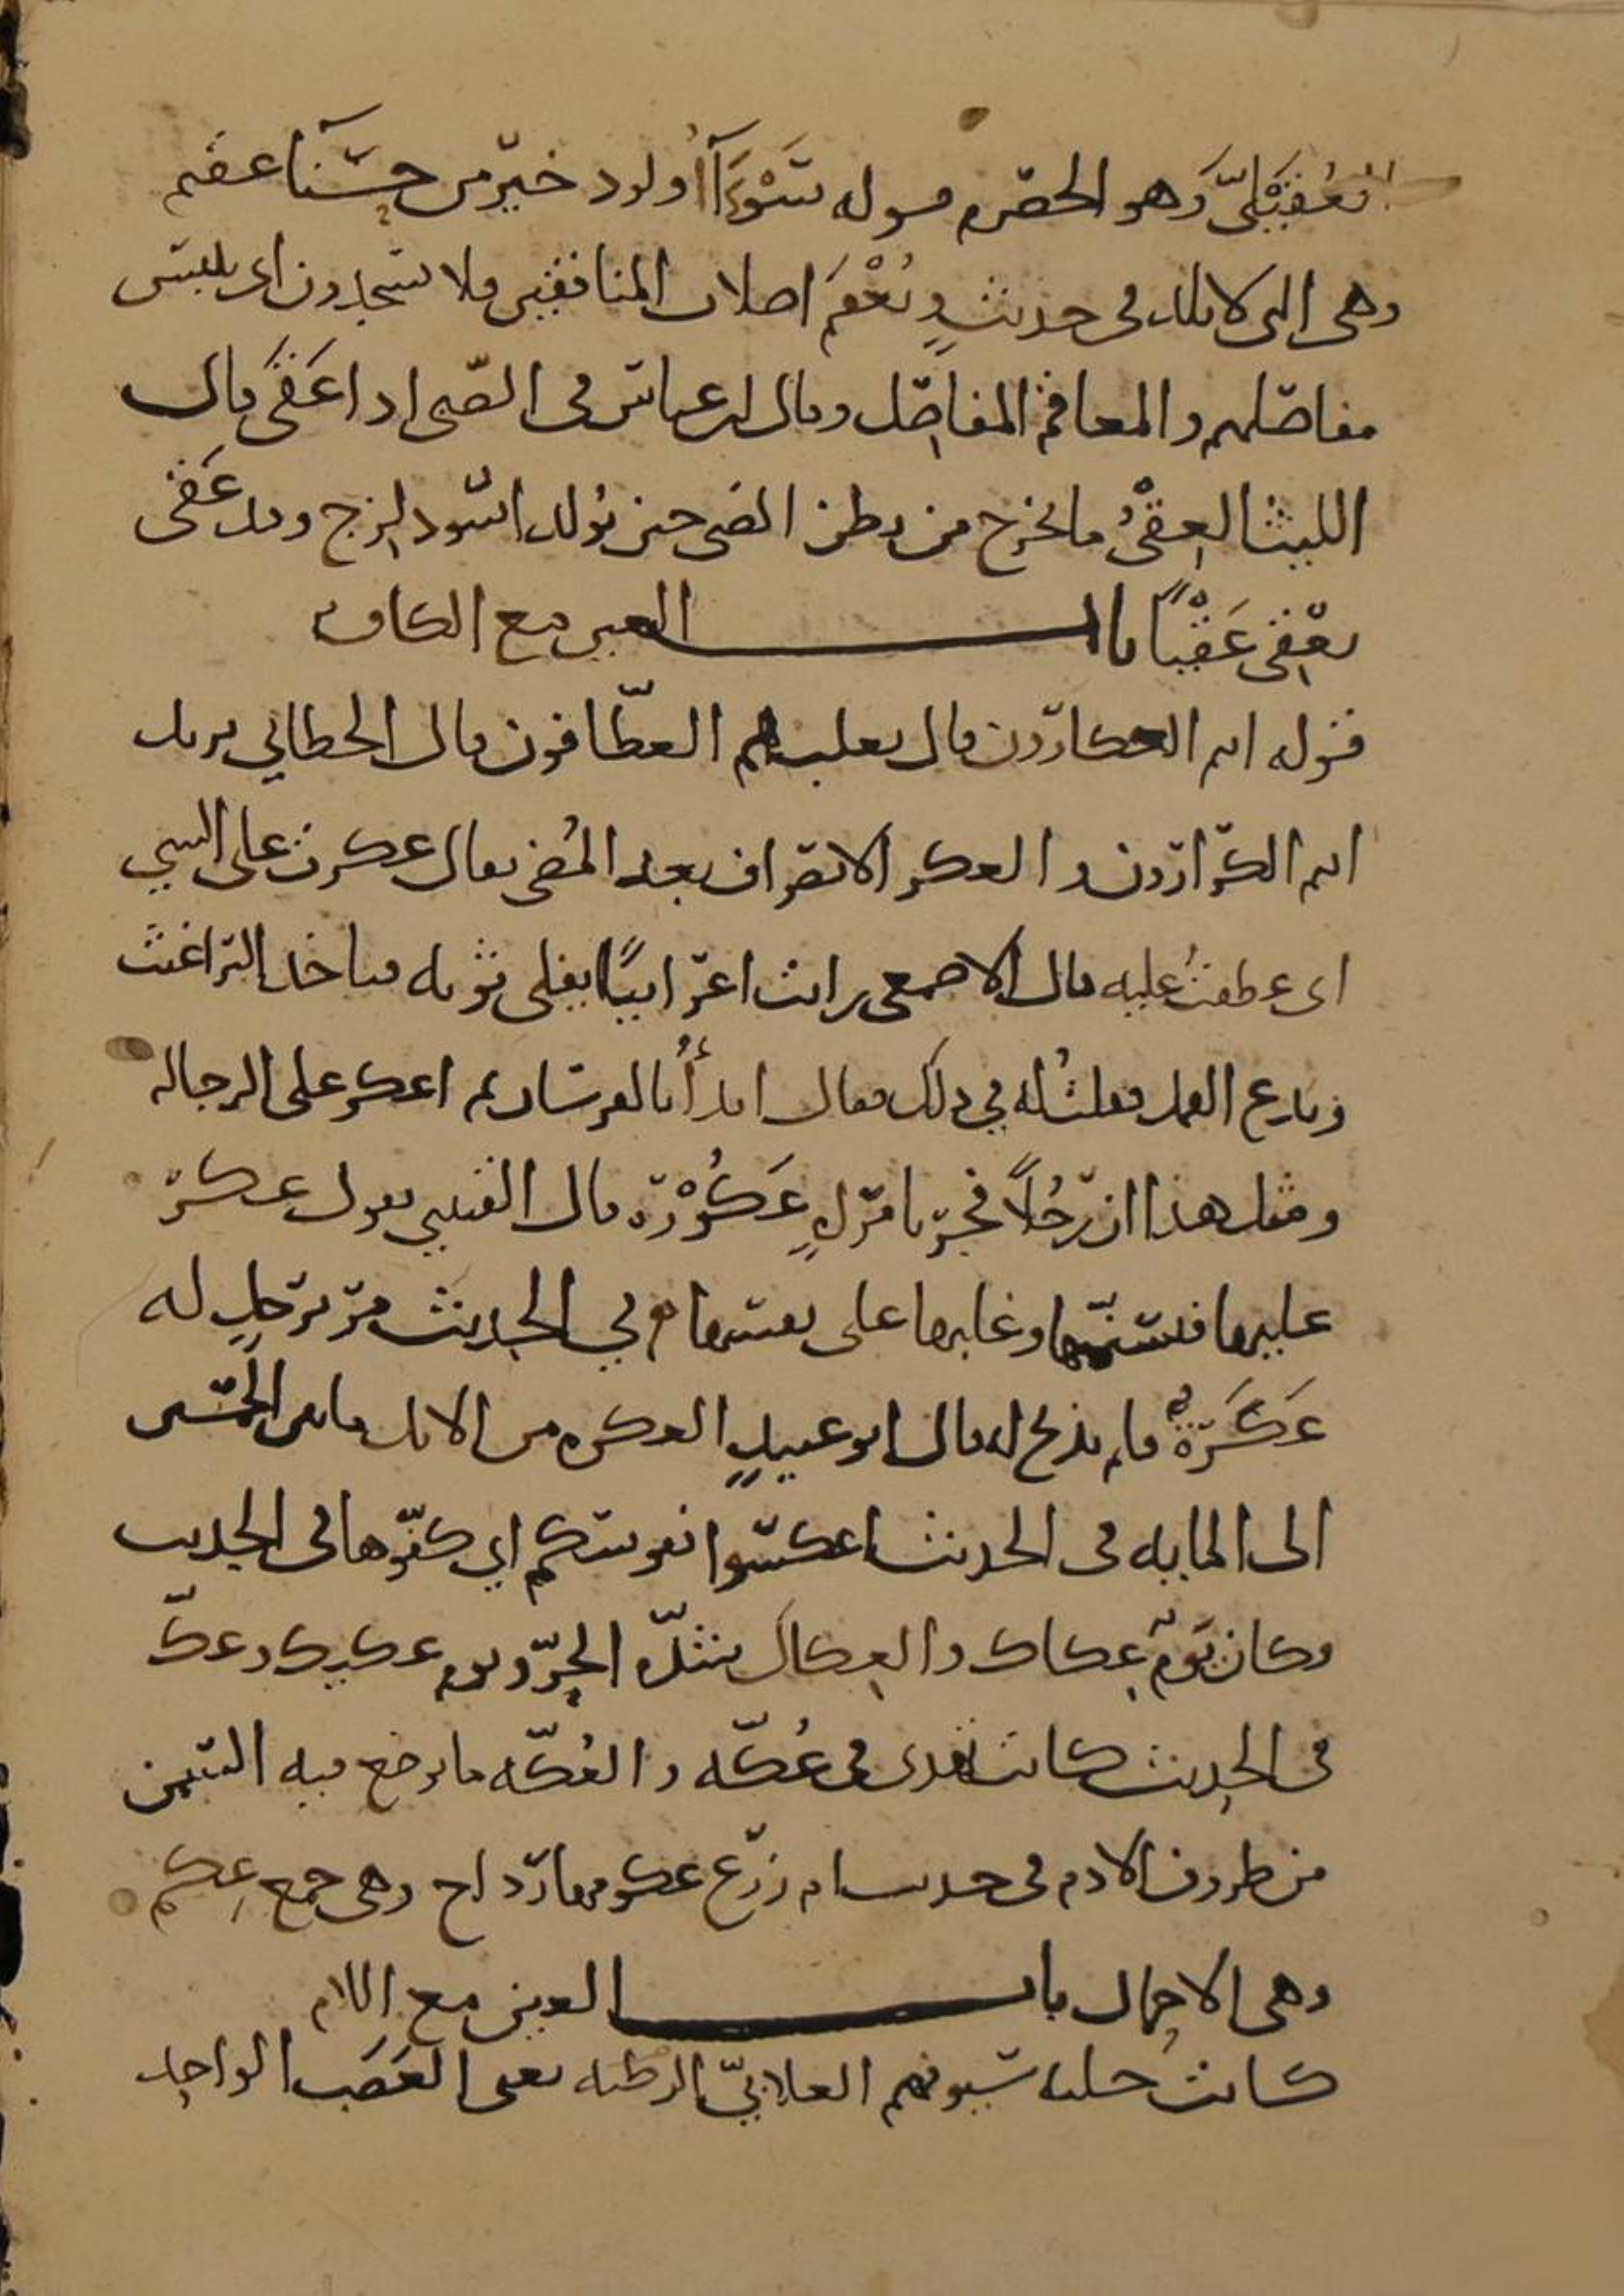 العقيلى وهو الحصرم قوله سَوْءَآءُ ولود خير من حسنا عقيم
وهى التى لا تلد فى حديثٍ وتُعْقَم اصلاب المنافقين فلا يسجدون اى تيبس
مفاصلهم والمعاقم المفاصل وقال ابن عباس فى الصبى اذا عَقَى قال
الليث العِقْىُ ما يخرج من بطن الصبى حين يُولد اسود لزج وقد عَقَى
يعْقِى عَقْيًا باب العين مع الكاف
قوله انتم العكارون قال ثعلب هم العطّافون قال الخطابي يريد
انتم الكرّارون والعكر الانصراف بعد المُضى يقال عكرت على الشي
اى عطفتُ عليه قال الاصمعى رايت اعرابيًا يفلى ثوبه فياخذ البراغيث
ويدع القمل فقلتُ له في ذلك فقال ابدأُ بالفرسان ثم اعكر على الرجالة
ومثل هذا ان رجُلاً فجر بامرأةٍ عَكُوْرَة قال القتيبي يقول عكر
عليها فتسنمها وغلبها على نفسها وفي الحديث مرّ برجلٍ له
عَكَرَةٌ فلم يذبح له قال ابو عبيدٍ العكره من الابل ما بين الخمسين
الى المايه فى الحديث اعكسوا نفوسكم اي كفّوها فى الحديث
وكان يومٌ عِكاك والعِكاك شدّه الحرّ ويوم عكيك وعكّ
فى الحديث كانت تهدى فى عُكّه والعُكّه ما يوضع فيه السمن
من ظروف الادم فى حديث ام زرع عكومها رداح وهى جمع عِكم
وهى الاحمال باب العين مع اللام
كانت حلية سيوفهم العلابيّ الرطبه يعنى العَصَب الواحد